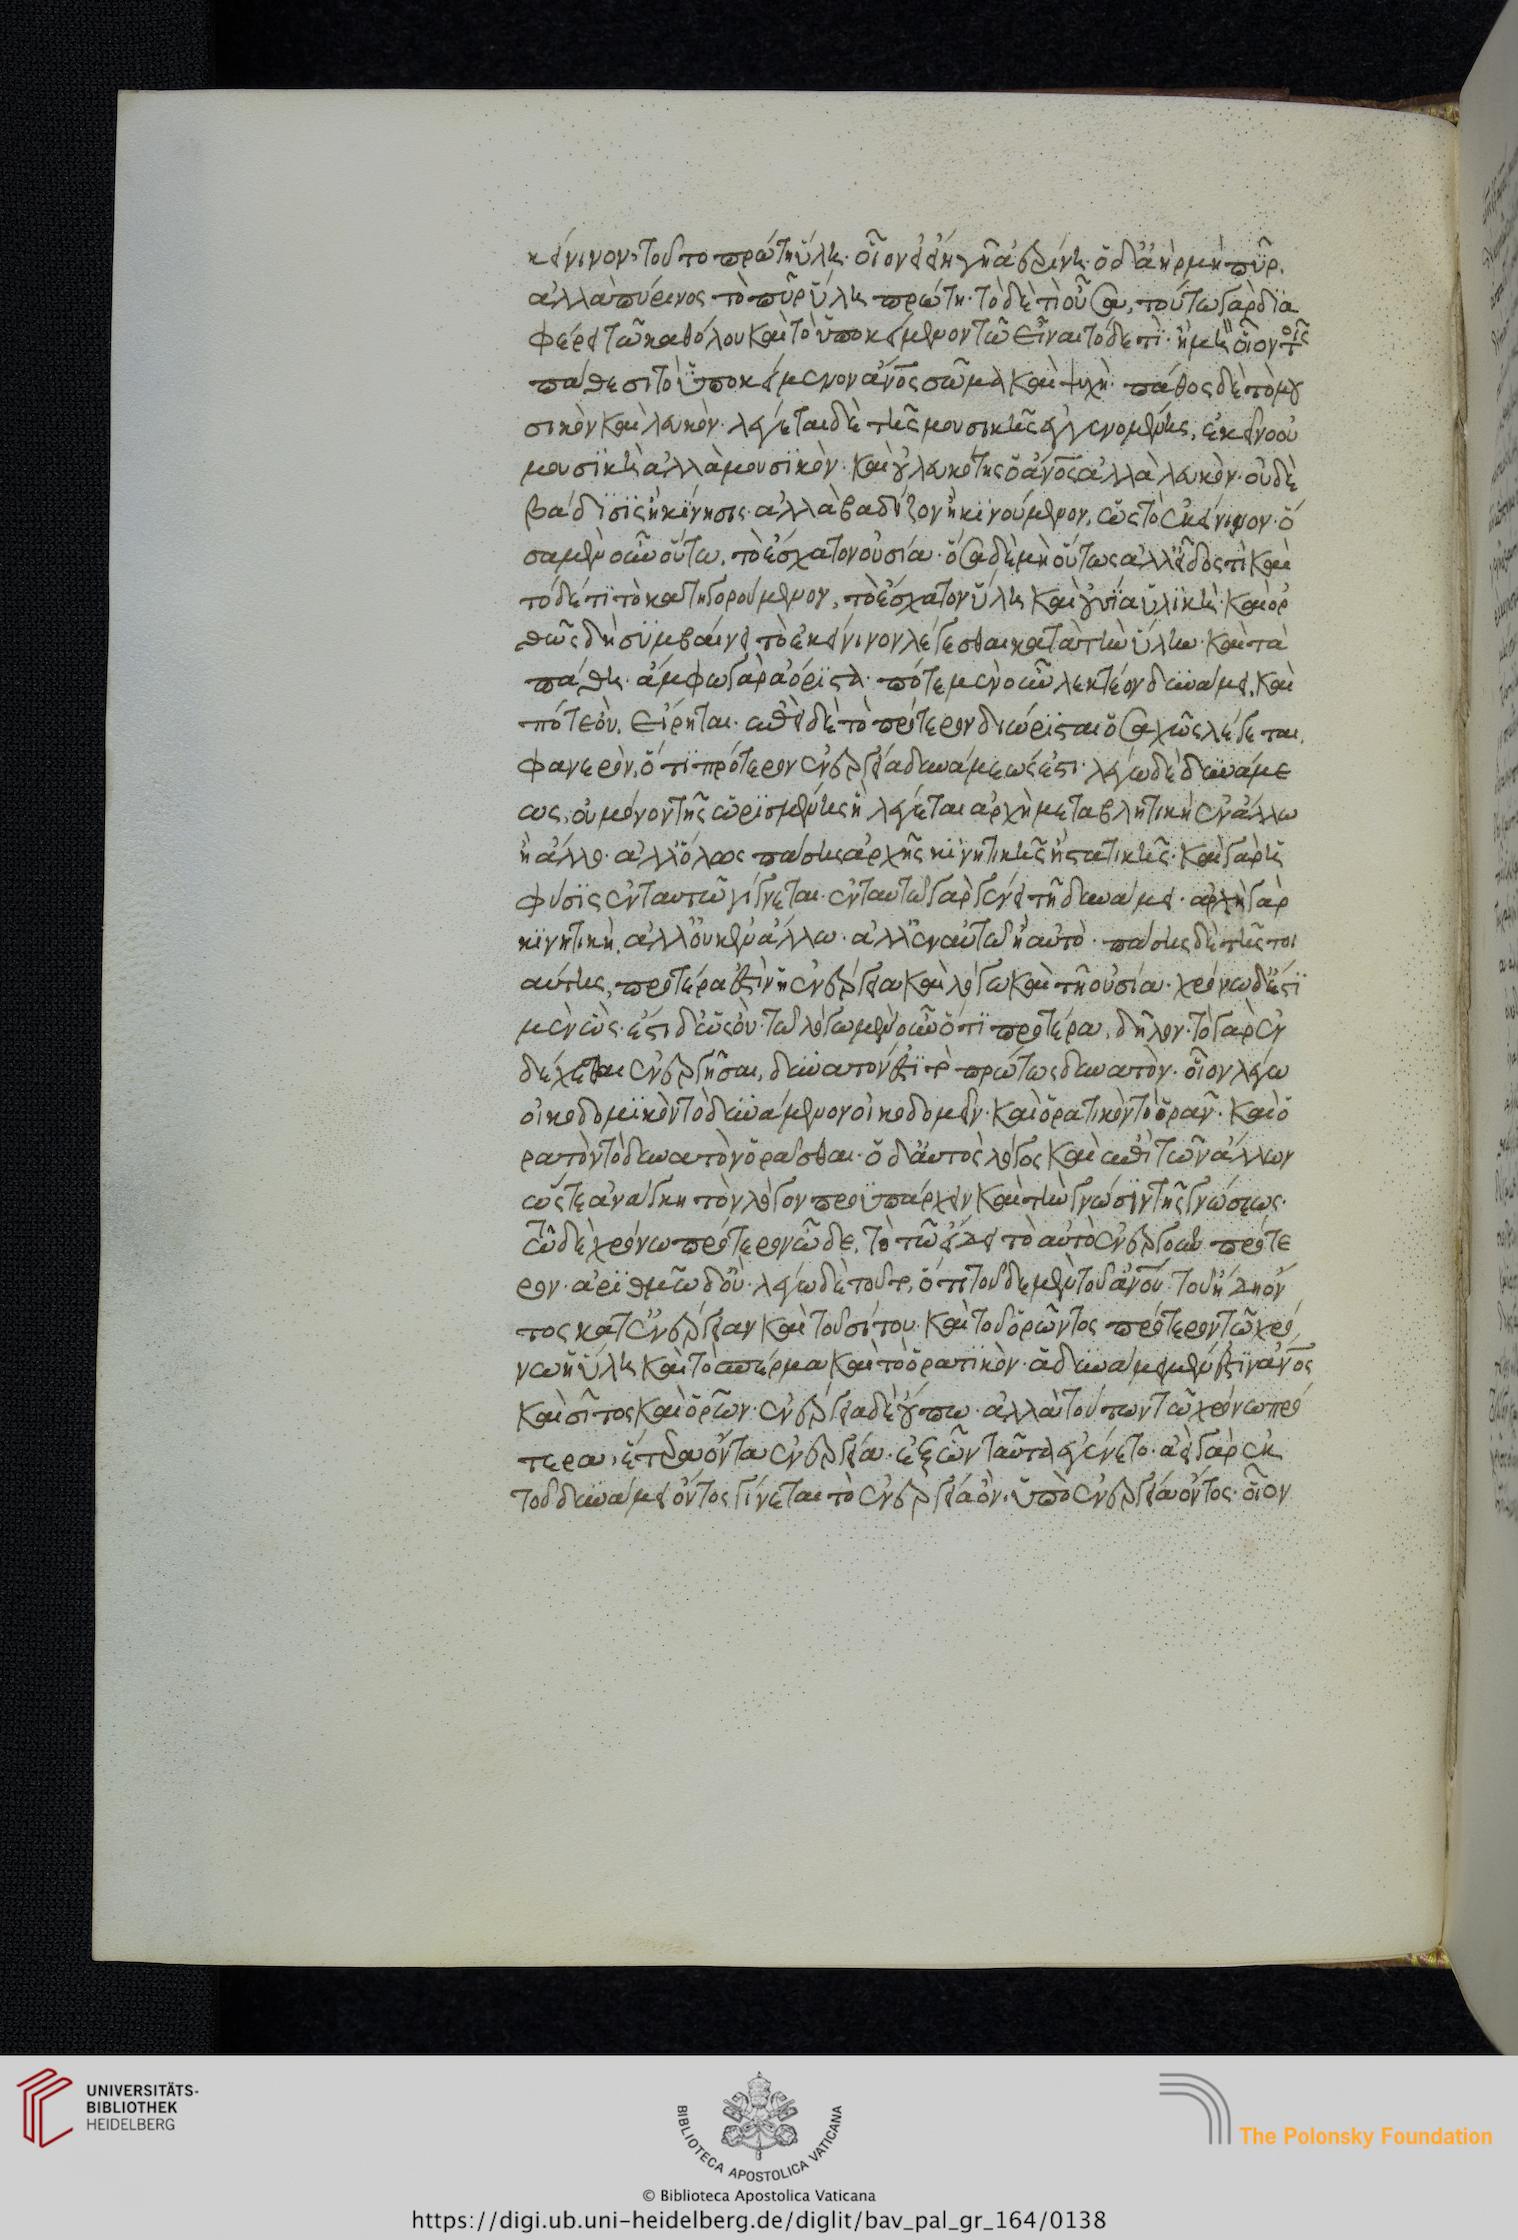 κείνινον, τοῦτο πρώτη ὕλη· οἷον εἰ ἡ γῆ ἀερίνη· ὁ δ' ἀὴρ μὴ πῦρ,
ἀλλὰ πύρινος τὸ πῦρ ὕλη πρώτη· τὸδε τὶ οὖσα, τούτω γὰρ δϊα
φέρει τῶ καθόλου καὶ τὸ ὑποκείμενον τῶ εἶναι τόδε τι· ἢ μὴ οἷον τοῖς
πάθεσι τὸ ὑποκείμενον ἄνος σῶμα καὶ ψυχὴ· πάθος δὲ τὸ μου
σικὸν καὶ λευκὸν· λέγεται δὲ τῆς μουσικῆς ἐγγενομένης, ἐκεῖνο οὐ
μουσϊκὴ ἀλλὰ μουσϊκὸν· καὶ οὐ λευκότης ὁ ἄνος ἀλλὰ λευκὸν· οὐδὲ
βάδϊσϊς ἢ κίνησις· ἀλλὰ βαδίζον ἢ κϊνούμενον, ὡς τὸ ἐκείνινον· ὅ
σα μὲν οὖν οὕτω, τὸ ἔσχατον οὐσία· ὅσα δὲ μὴ οὕτως ἀλλ' εἶδός τὶ καὶ
τόδέ τϊ τὸ κατηγορούμενον, τὸ ἔσχατον ὕλη καὶ οὐσία ὑλϊκὴ· καὶ ὀρ
θῶς δὴ συμβαίνει τὸ ἐκείνινον λέγεσθαι κατὰ τὴν ὕλην· καὶ τὰ
πάθη· ἄμφω γὰρ ἀόρϊστα· πότε μὲν οὖν λεκτέον δυνάμει, καὶ
πότε οὐ, εἴρηται· ἐπεὶ δὲ τὸ πρότερον διώρϊσται ὁσαχῶς λέγεται,
φανερὸν, ὅτϊ πρότερον ἐνέργεια δυνάμεώς ἐστι· λέγω δὲ δυνάμε
ως, οὐ μόνον τῆς ὡρϊσμένης ἣ λέγεται ἀρχὴ μεταβλητικὴ ἐν ἄλλω
ἢ ἄλλο· ἀλλ' ὅλως πάσης ἀρχῆς κϊνητικῆς ἢ στατικῆς· καὶ γὰρ ἡ
φύσϊς ἐν ταυτῶ γίγνεται· ἐν ταυτῶ γὰρ γένει τῆ δυνάμει· ἀρχὴ γὰρ
κϊνητικὴ, ἀλλ' οὐκ ἐν ἄλλω· ἀλλ' ἐν αὐτῶ ἢ αὐτὸ· πάσης δὲ τῆς τοι
αύτης, προτέρα ἐστὶν ἡ ἐνέργεια καὶ λόγω καὶ τῆ οὐσία· χρόνω δ' ἔστϊ
μὲν ὡς· ἔστι δ' ὡς οὐ· τῶ λόγω μὲν οὖν ὅτϊ προτέρα, δῆλον· τὸ γὰρ ἐν
δέχεσθαι ἐνεργῆσαι, δυνατόν ἐστϊ τὸ πρώτως δυνατὸν· οἷον λέγω
οἰκοδομϊκὸν τὸ δυνάμενον οἰκοδομεῖν· καὶ ὁρατικὸν τὸ ὁρᾶν· καὶ ὁ
ρατὸν τὸ δυνατὸν ὁρᾶσθαι· ὁ δ' αὐτὸς λόγος καὶ ἐπὶ τῶν ἄλλων
ὥστε ἀνάγκη τὸν λόγον προϋπάρχειν καὶ τὴν γνώσϊν τῆς γνώσεως·
τῶ δὲ χρόνω πρότερον ὧδε, τὸ τῶ εἴδει τὸ αὐτὸ ἐνεργοῦν πρότε
ρον· ἀρϊθμῶ δ' οὐ· λέγω δὲ τοῦτο, ὅτι τοῦδε μὲν τοῦ ἄνου τοῦ ἤδη ὄν
τος κατ' ἐνέργειαν καὶ τοῦ σίτου· καὶ τοῦ ὁρῶντος πρότερον τῶ χρό
νω ἡ ὕλη καὶ τὸ σπέρμα καὶ τὸ ὁρατϊκὸν· ἃ δυνάμει μέν ἐστϊν ἄνος
καὶ σῖτος καὶ ὁρῶν· ἐνεργεία δὲ οὔπω· ἀλλὰ τούτων τῶ χρόνω πρό
τερα, ἕτερα ὄντα ἐνεργεία· ἐξ ὧν ταῦτα ἐγένετο· ἀεὶ γὰρ ἐκ
τοῦ δυνάμει ὄντος γίνεται τὸ ἐνεργεία ὂν, ὑπὸ ἐνεργεία ὄντος· οἷον
UNIVERSITÄTS-
BIBLIOTHEK
HEIDELBERG
BIBLIOTECA APOSTOLICA VATICANA
The Polonsky Foundation
© Biblioteca Apostolica Vaticana
https://digi.ub.uni-heidelberg.de/diglit/bav_pal_gr_164/0138